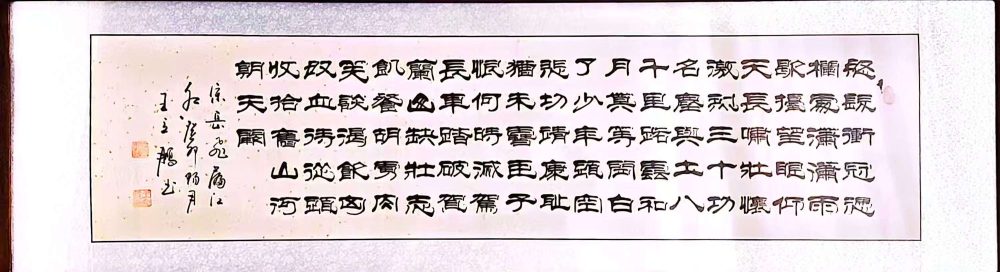 怒髮衝冠憑
欄處瀟瀟雨
歇擡望眼仰
天長嘯壯懷
激烈三十功
名塵與土八
千里路雲和
月莫等閑白
了少年頭空
悲切靖康恥
猶未雪臣子
恨何時滅駕
長車踏破賀
蘭山缺壯志
飢餐胡虜肉
笑談渴飲匈
奴血待從頭
收拾舊山河
朝天闕
宋岳飛滿江
紅癸卯陽月
王立鵬書